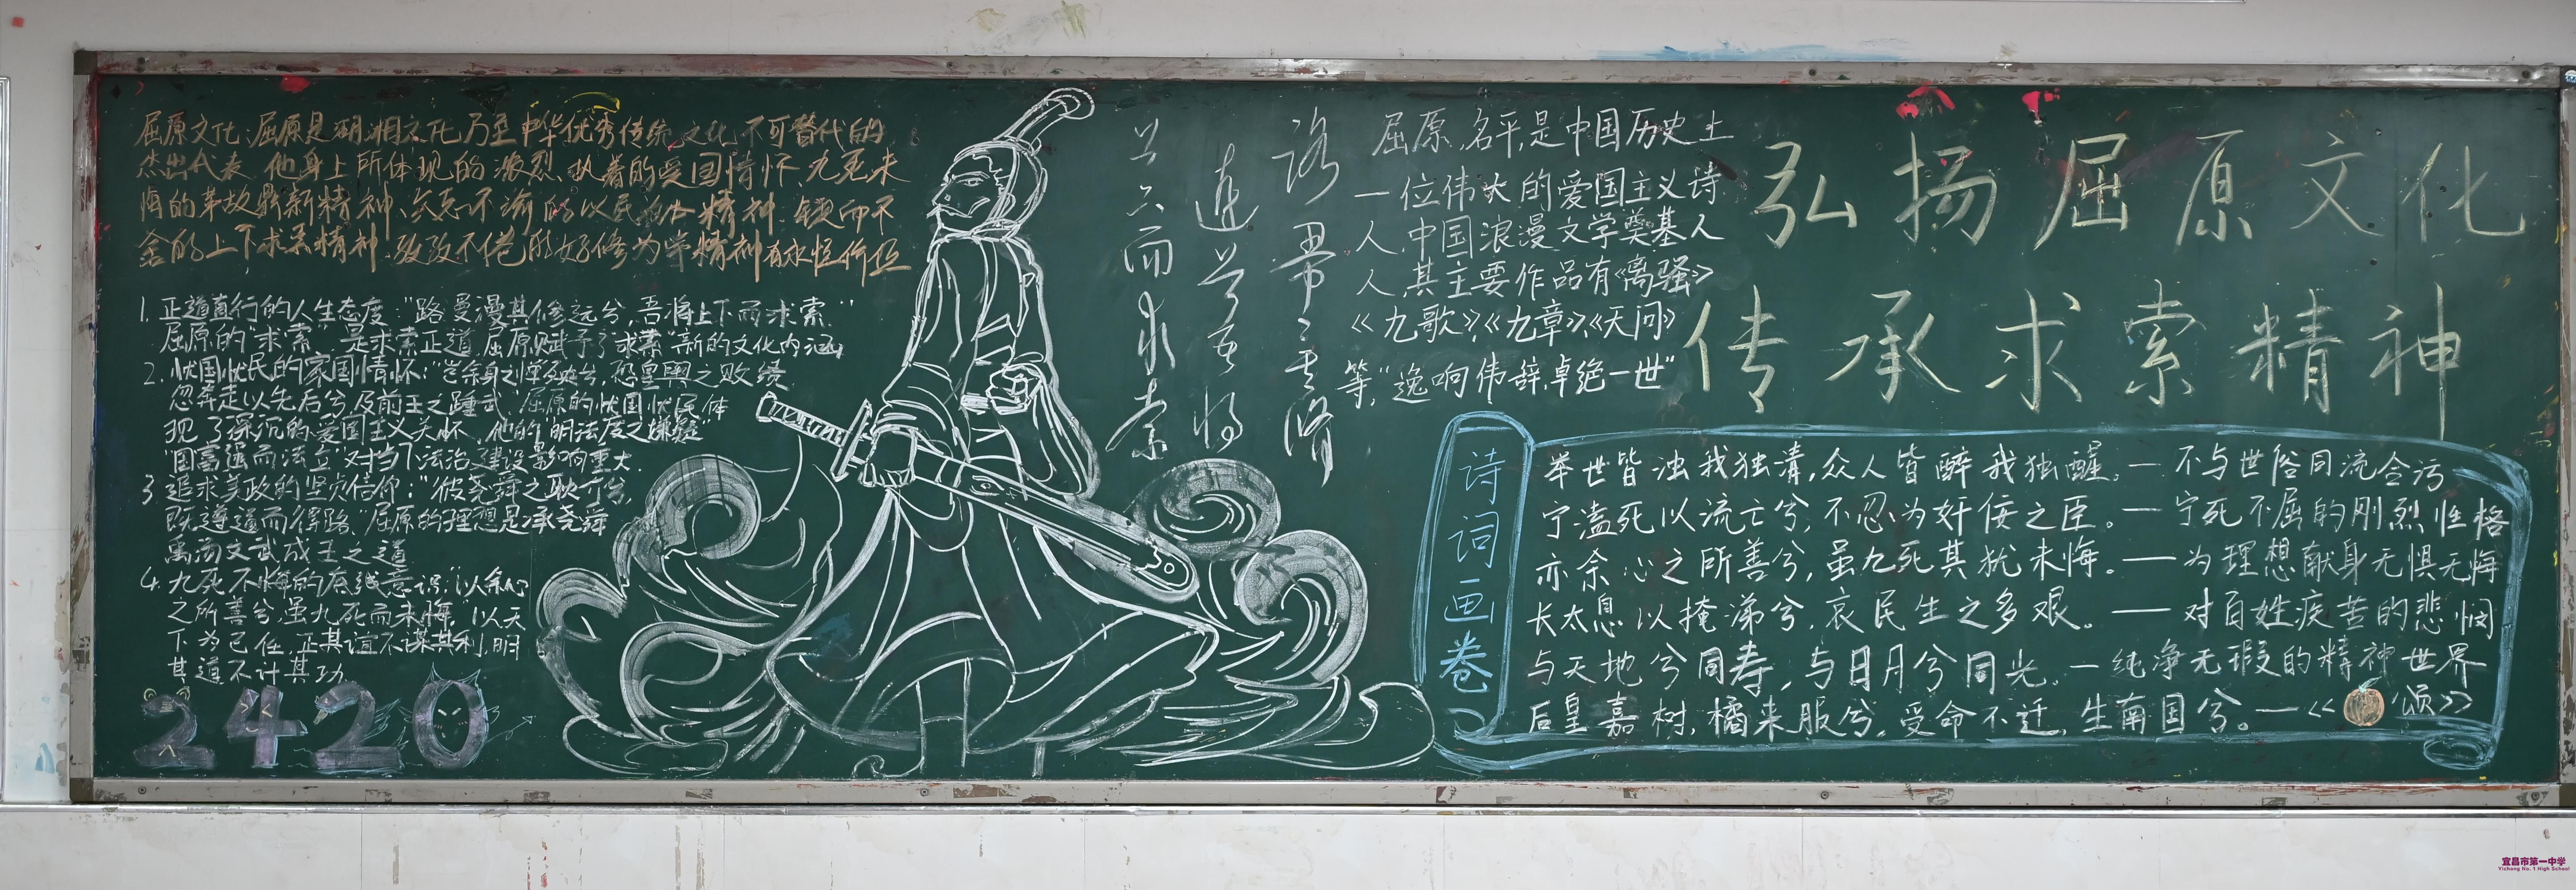 屈原文化:屈原是湖湘文化乃至中华优秀传统文化不可替代的
杰出代表.他身上所体现的浓烈、执着的爱国情怀、九死未
悔的革故鼎新精神、矢志不渝的以民为本精神.锲而不
舍的上下求索精神.孜孜不倦的好修为常精神有永恒价值
1. 正道直行的人生态度:“路曼漫其修远兮,吾将上下而求索.”
屈原的“求索”,是求索正道,屈原赋予了“求索”新的文化内涵
2. 忧国忧民的家国情怀:“岂余身之惮殃兮,恐皇舆之败绩.
忽奔走以先后兮,及前王之踵武.”屈原的忧国忧民体
现了深沉的爱国主义关怀,他的“明法度之嫌疑”
“国富强而法立”对当下法治建设影响重大.
3. 追求美政的坚贞信仰:“彼尧舜之耿介兮,
既遵道而得路.”屈原的理想是承尧舜
禹汤文武成王之道
4. 九死不悔的底线意识:“以余心
之所善兮,虽九死而未悔.”以天
下为己任,正其谊不谋其利,明
其道不计其功
2420
路曼曼其修
远兮吾将
上下而求索
屈原,名平,是中国历史上
一位伟大的爱国主义诗
人,中国浪漫文学奠基人
人,其主要作品有《离骚》
《九歌》,《九章》,《天问》
等,“逸响伟辞,卓绝一世”
弘扬屈原文化
传承求索精神
诗词画卷
举世皆浊我独清,众人皆醉我独醒。— 不与世俗同流合污
宁溘死以流亡兮,不忍为奸佞之臣。— 宁死不屈的刚烈性格
亦余心之所善兮,虽九死其犹未悔。— 为理想献身无惧无悔
长太息以掩涕兮,哀民生之多艰。— 对百姓疾苦的悲悯
与天地兮同寿,与日月兮同光.— 纯净无瑕的精神世界
后皇嘉树,橘来服兮,受命不迁,生南国兮。—《 颂》
宜昌市第一中学
Yichang No. 1 High School